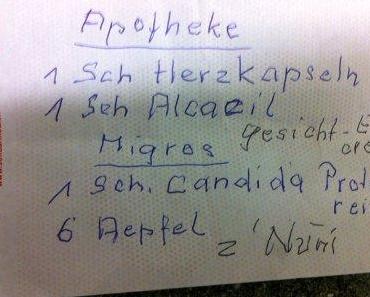 Apotheke
1 Sch Herzkapseln
1 Sch Alcacil
gesicht-
Migros
1 Sch. Candida Prot
rei
6 Aepfel
z'Nüni